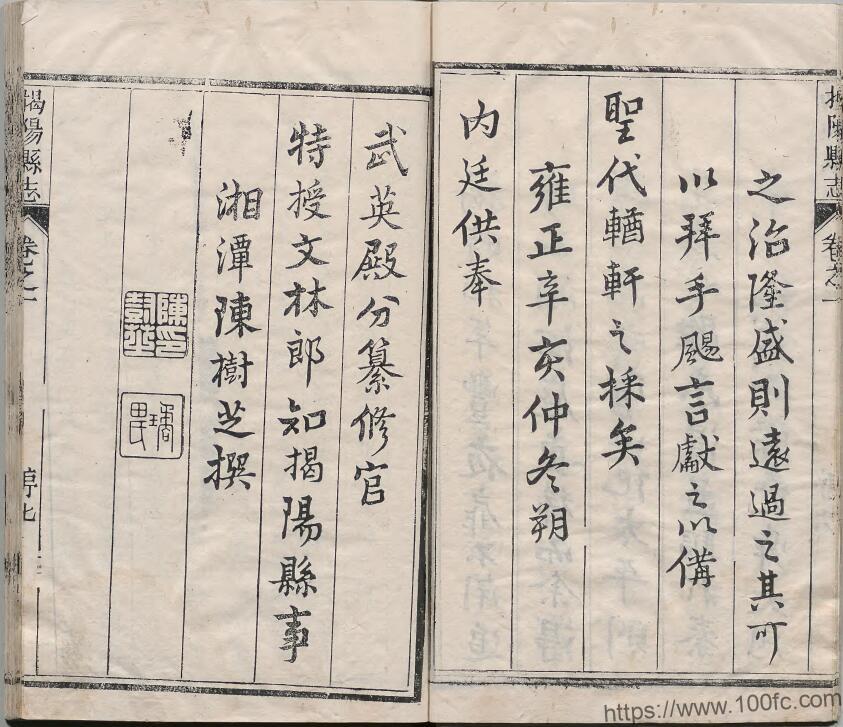 揭陽縣志
卷之一
之治隆盛則遠過之其可
以拜手颺言獻之以備
聖代輶軒之採矣
雍正辛亥仲冬朔
内廷供奉
武英殿分纂修官
特授文林郎知揭陽縣事
湘潭陳樹芝撰
陳印
揭陽縣志
卷之一
序七
https://www.100fc.com